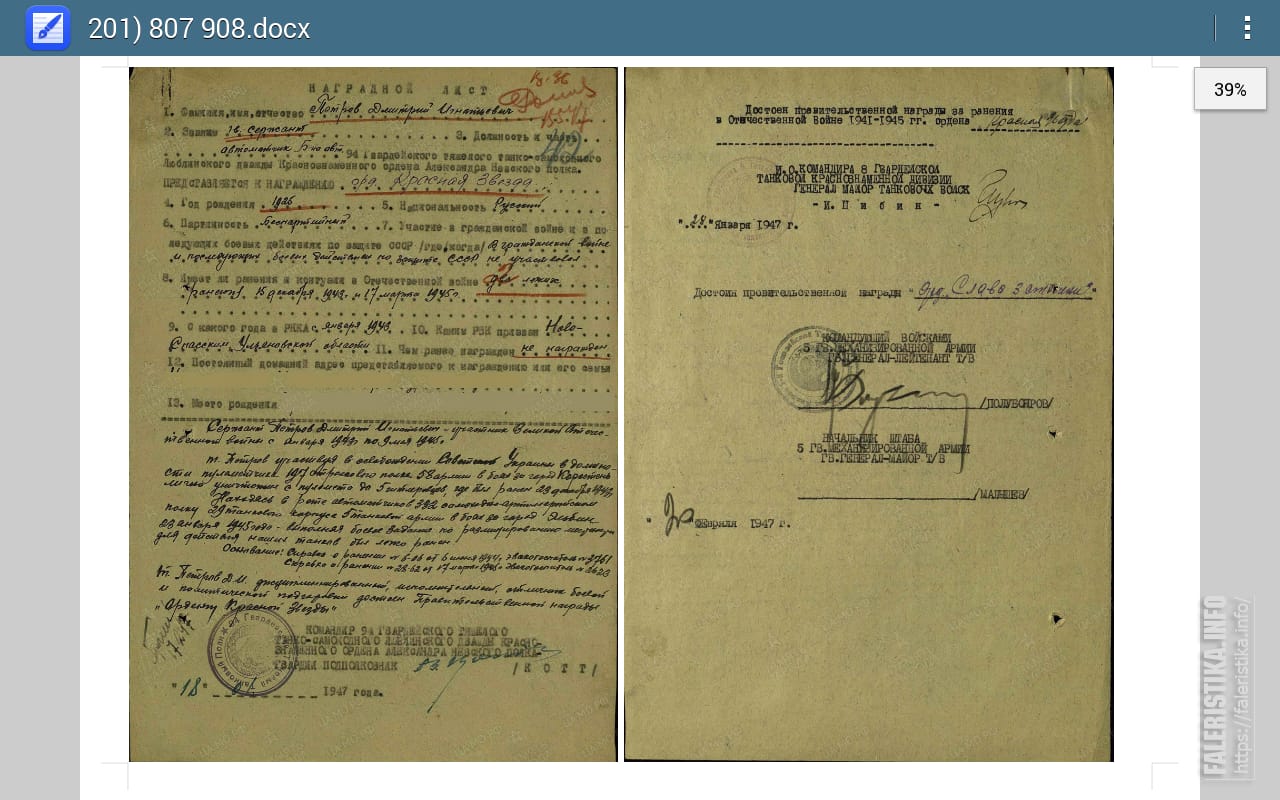 201) 807 908.docx
39%
НАГРАДНОЙ ЛИСТ
1. Фамилия, имя, отчество Петров Дмитрий Игнатьевич
2. Звание гв. сержант 3. Должность и часть
автоматчик 94 Гвардейского тяжелого танко-самоходного
Люблинского дважды Краснознаменного ордена Александра Невского полка.
ПРЕДСТАВЛЯЕТСЯ К НАГРАЖДЕНИЮ орд. Красная Звезда
4. Год рождения 1926 5. Национальность Русский
6. Партийность Беспартийный 7. Участие в гражданской войне и в по
ледующих боевых действиях по защите СССР /где, когда/ В гражданской войне
и последующих боевых действиях по защите СССР не участвовал
8. Имеет ли ранения и контузии в Отечественной войне два легких
ранения 1943г. и 17 марта 1945г.
9. С какого года в РККА с января 1943. 10. Каким РВК призван Ново-
Спасским Ульяновской области 11. Чем ранее награжден не награжден
12. Постоянный домашний адрес представляемого к награждению или его семьи
13. Место рождения
Сержант Петров Дмитрий Игнатьевич - участник Великой Отече-
ственной войны с января 1943г. по 9 мая 1945г.
т. Петров участвуя в освобождении Советской Украины в должно-
сти пулеметчика стрелкового полка 58 армии в боях за город Коростень
лично уничтожил с пулемета до 5 гитлеровцев, где был ранен
Находясь в роте автоматчиков 332 самоходно-артиллерийском
полку 29 танкового корпуса 5 танковой армии в боях за город
23 января 1945 года - выполняя боевое задание по разминированию
для действия наших танков был легко ранен
Основание: Справка о ранении эвакогоспиталь № 3761
Справка о ранении эвакогоспиталь №
т. Петров Д.И. дисциплинированный, исполнительный, отличник боевой
и политической подготовки достоен Правительственной награды
"Ордена Красной Звезды"
КОМАНДИР 94 ГВАРДЕЙСКОГО ТЯЖЕЛОГО
ТАНКО-САМОХОДНОГО ЛЮБЛИНСКОГО ДВАЖДЫ КРАСНО-
ЗНАМЕННОГО ОРДЕНА АЛЕКСАНДРА НЕВСКОГО ПОЛКА
ГВАРДИИ ПОДПОЛКОВНИК / КОТТ /
"18" 01 1947 года.
Достоен правительственной награды за ранения
в Отечественной Войне 1941-1945 гг. ордена Красная Звезда
И.О.КОМАНДИРА 8 ГВАРДЕЙСКОЙ
ТАНКОВОЙ КРАСНОЗНАМЕННОЙ ДИВИЗИИ
ГЕНЕРАЛ МАЙОР ТАНКОВЫХ ВОЙСК
- И. Пибин -
"28" Января 1947 г.
Достоин правительственной награды "Орд. Слава 3 степени"
КОМАНДУЮЩИЙ ВОЙСКАМИ
5 ГВ.МЕХАНИЗИРОВАННОЙ АРМИИ
ГВ.ГЕНЕРАЛ-ЛЕЙТЕНАНТ Т/В
/ПОЛУБОЯРОВ/
НАЧАЛЬНИК ШТАБА
5 ГВ.МЕХАНИЗИРОВАННОЙ АРМИИ
ГВ.ГЕНЕРАЛ-МАЙОР Т/В
/МАЛЫШЕВ/
Февраля 1947 г.
FALERISTIKA.INFO
https://faleristika.info/